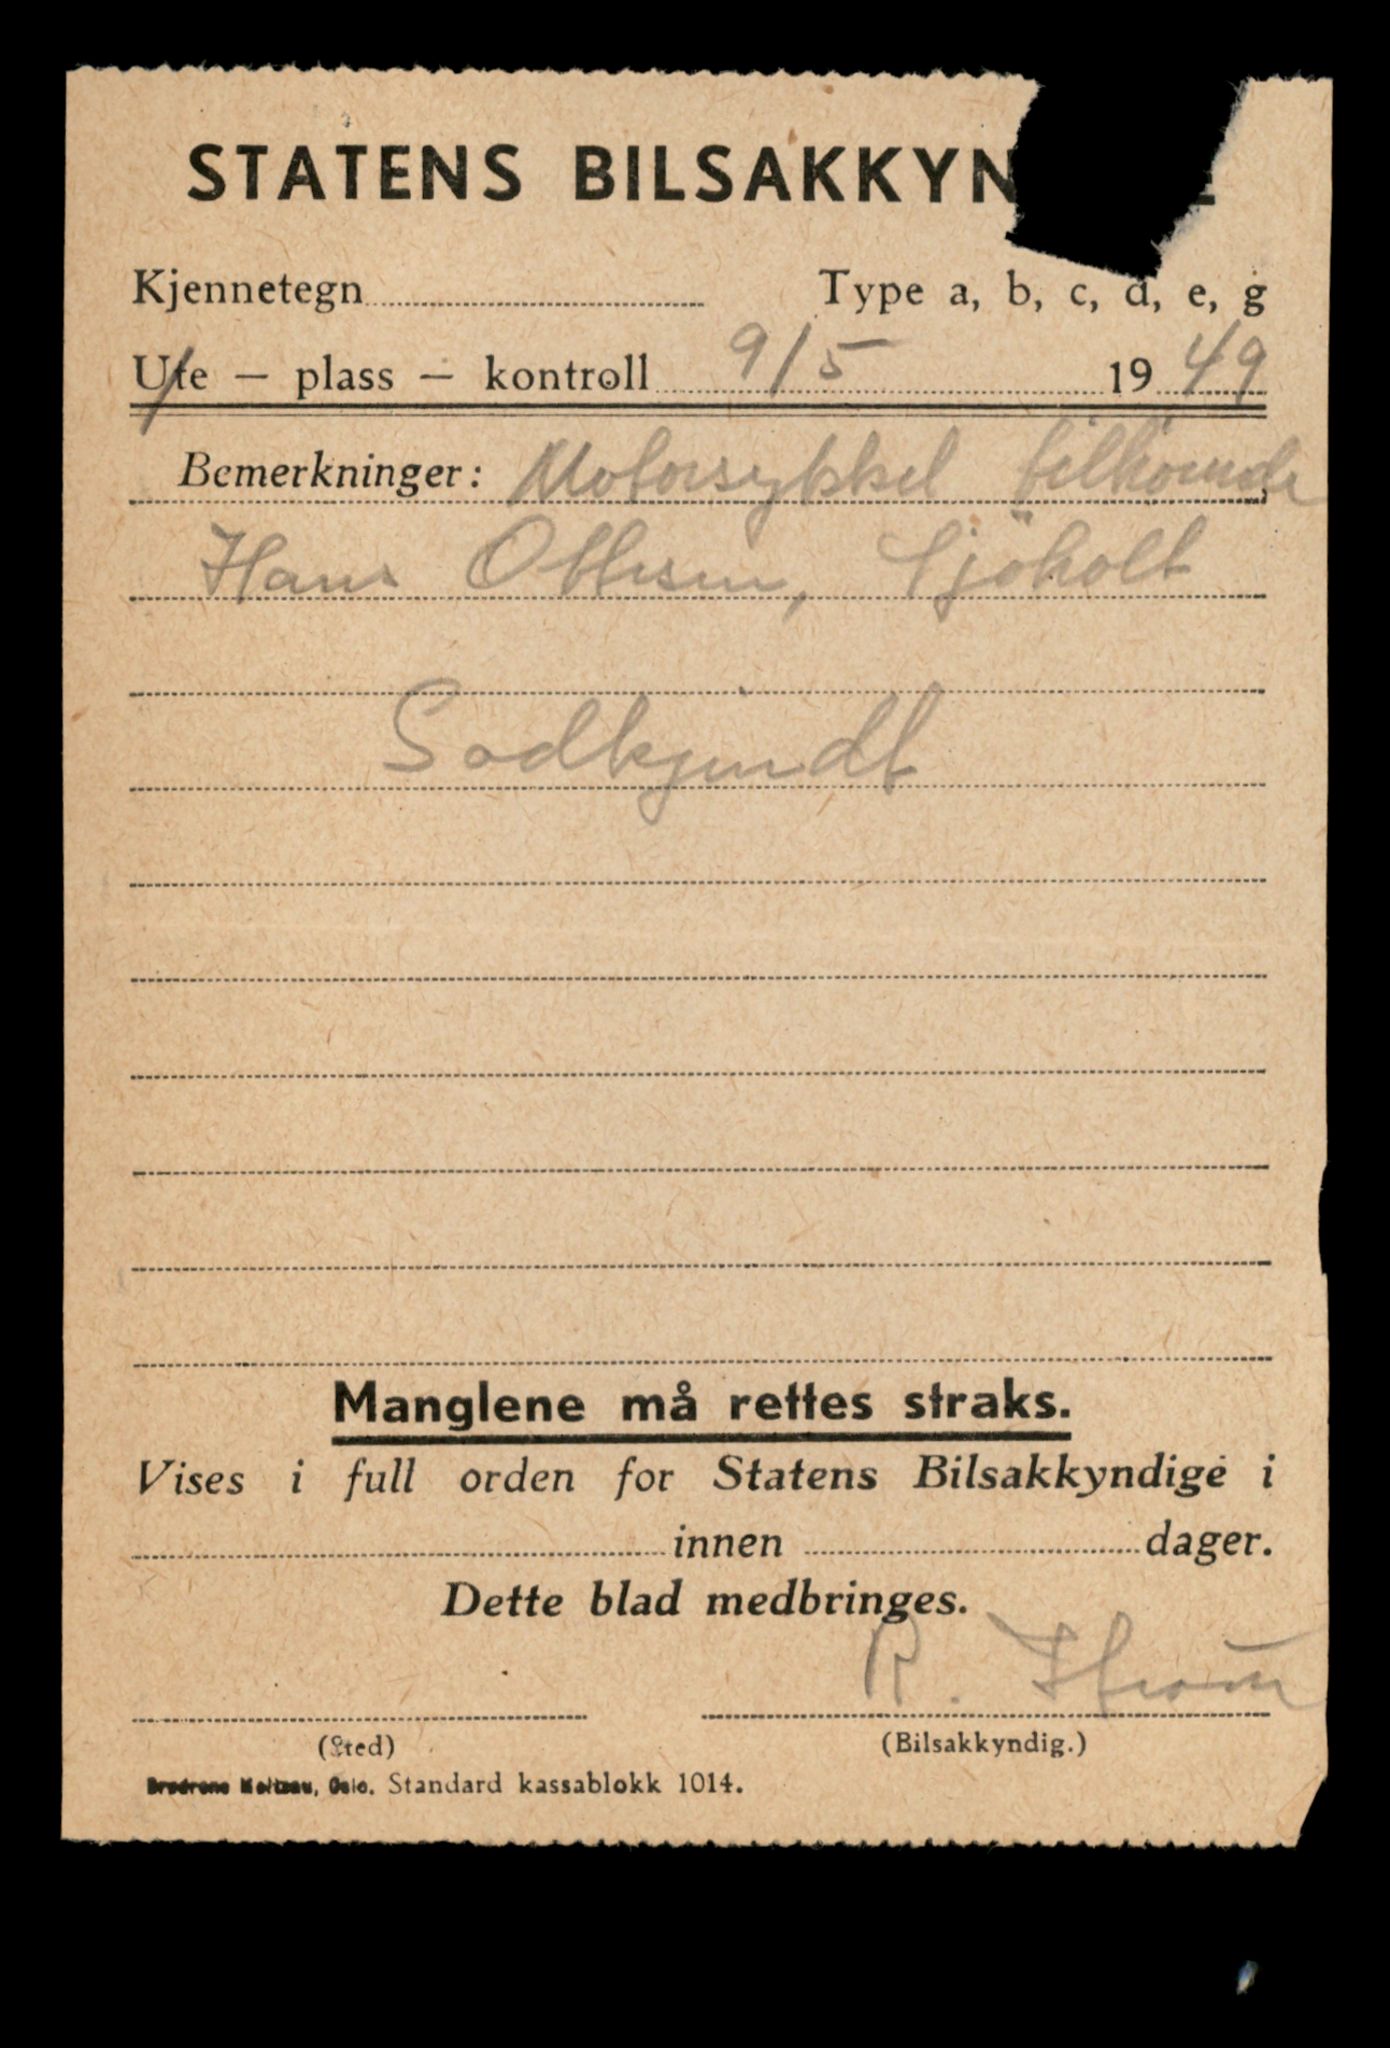 STATENS BILSAKKYN
Kjennetegn Type a, b, c, d, e, g
Ute — plass — kontroll 9/5 1949
Bemerkninger: Motorsykkel tilhörende
Hans Ottesen, Sjöholt
Godkjendt
Manglene må rettes straks.
Vises i full orden for Statens Bilsakkyndige i
innen dager.
Dette blad medbringes.
R.
(Sted) (Bilsakkyndig.)
Oslo. Standard kassablokk 1014.